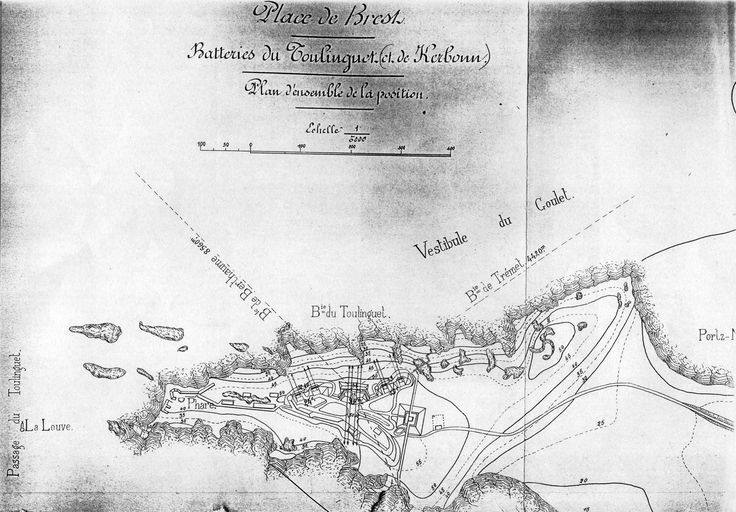 Place de Brest.
Batteries du Toulinguet (et de Kerbonn)
Plan d'ensemble de la position.
Echelle 1/5000
100 50 0 100 200 300 400
Vestibule du Goulet.
Bie de Berthaume 8560m
Bie de Trémet 4420m
Bie du Toulinguet.
Portz-N
Passage du Toulinguet.
La Louve.
Phare
25
20